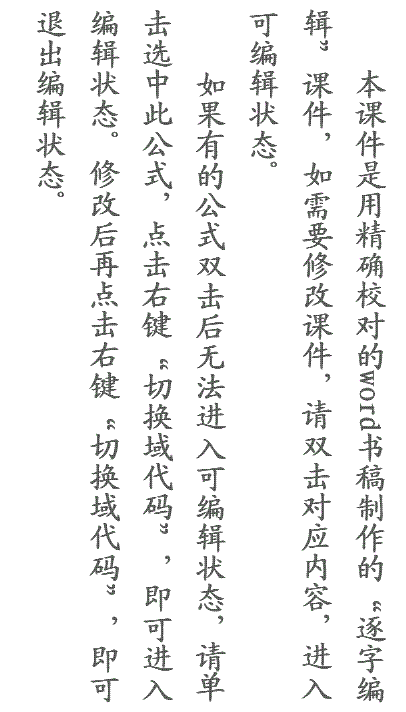 本课件是用精确校对的word书稿制作的“逐字编
辑”课件，如需要修改课件，请双击对应内容，进入
可编辑状态。
如果有的公式双击后无法进入可编辑状态，请单
击选中此公式，点击右键“切换域代码”，即可进入
编辑状态。修改后再点击右键“切换域代码”，即可
退出编辑状态。